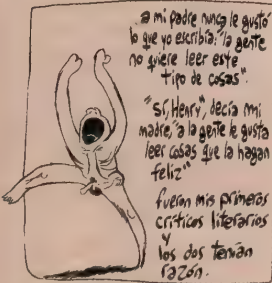 a mi padre nunca le gustó
lo que yo escribía: "la gente
no quiere leer este
tipo de cosas".
"sí, Henry", decía mi
madre, "a la gente le gusta
leer cosas que la hagan
feliz"
fueron mis primeros
críticos literarios
y
los dos tenían
razón.